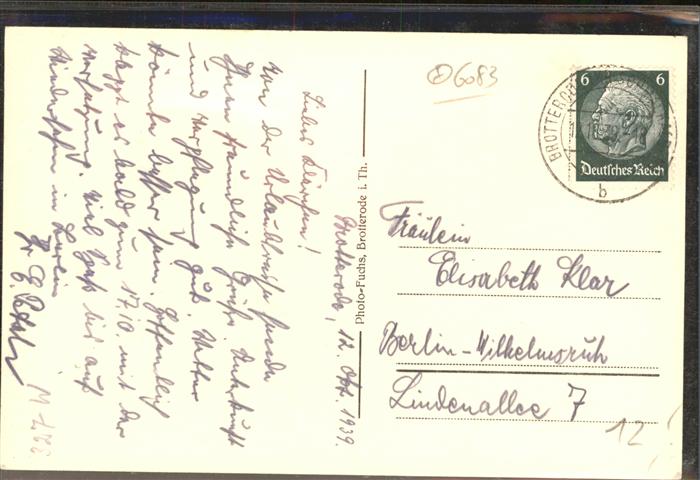 Brotterode, 12. Okt. 1939.
Liebes Klärchen!
Von der Urlaubsreise sende
Ihnen freundliche Grüße. Unterkunft
und Verpflegung gut. Wetter
könnte besser sein. Hoffentlich
klappt es bald zum 17.10. mit der
Viel Spaß bis auf
Wiedersehen in Berlin
Photo-Fuchs, Brotterode i. Th.
6083
6 6
Deutsches Reich
BROTTERODE
b
Fräulein
Elisabeth Klar
Berlin-Wilhelmsruh
Lindenallee 7
12